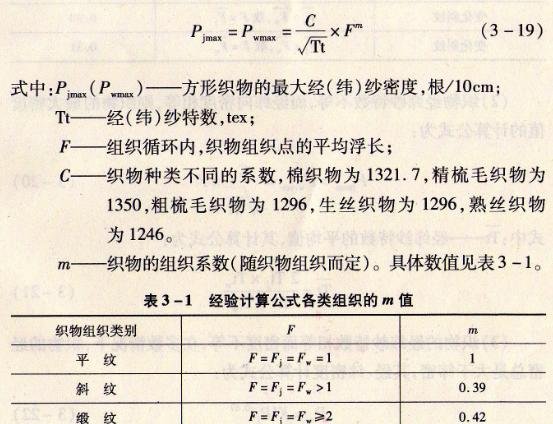 P_jmax = P_wmax = C/√Tt × F^m (3-19)
式中:P_jmax(P_wmax)——方形织物的最大经(纬)纱密度,根/10cm;
Tt——经(纬)纱特数,tex;
F——组织循环内,织物组织点的平均浮长;
C——织物种类不同的系数,棉织物为1321.7,精梳毛织物为
1350,粗梳毛织物为1296,生丝织物为1296,熟丝织物
为1246。
m——织物的组织系数(随织物组织而定)。具体数值见表3-1。
表3-1 经验计算公式各类组织的m值
织物组织类别 F m
平 纹 F=F_j=F_w=1 1
斜 纹 F=F_j=F_w>1 0.39
缎 纹 F=F_j=F_w≥2 0.42